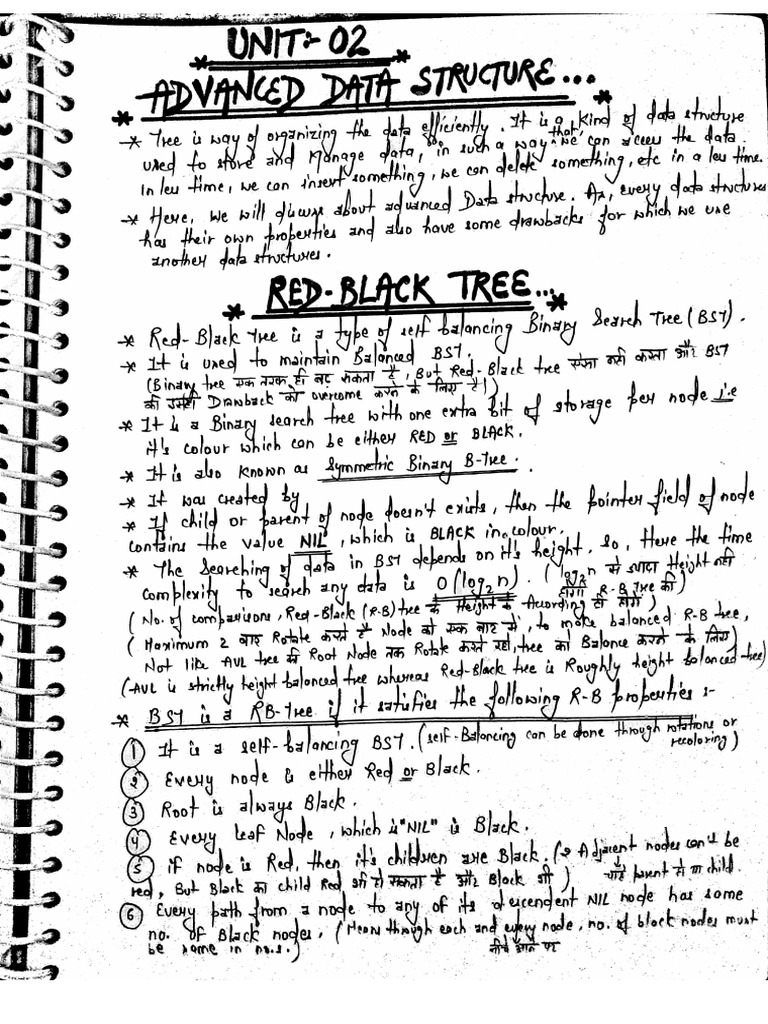 UNIT:- 02
* ADVANCED DATA STRUCTURE... *
* Tree is way of organizing the data efficiently. It is a kind of data structure
used to store and Manage data, in such a way that we can access the data
in less time, we can insert something, we can delete something, etc in a less time.
* Here, we will discuss about advanced Data structure. As, every data structures
has their own properties and also have some drawbacks for which we use
another data structures.
* RED-BLACK TREE... *
* Red-Black Tree is a type of self balancing Binary Search Tree (BST).
* It is used to maintain Balanced BST.
(Binary tree एक तरफ ही बढ़ सकता है, But Red-Black tree ऐसा नहीं करता और BST
की इसी Drawback को overcome करने के लिए है।)
* It is a Binary search tree with one extra bit of storage per node i.e
it's colour which can be either RED or BLACK.
* It is also known as Symmetric Binary B-Tree.
* It was created by
* If child or parent of node doesn't exists, then the pointer field of node
contains the value NIL, which is BLACK in colour.
* The Searching of data in BST depends on it's height. so, Here the time
complexity to search any data is O(log₂n). (log₂n से ज्यादा Height नहीं
होगा R-B Tree की)
(No. of comparisons, Red-Black (R-B) tree के Height के According ही होगा)
(Maximum 2 बार Rotate करते है Node को एक बार में, to make balanced R-B tree,
Not like AVL tree Root Node तक Rotate करते रहो, tree को Balance करने के लिए)
(AVL is strictly height balanced tree whereas Red-Black tree is Roughly height balanced tree)
* BST is a RB-Tree if it satisfies the following R-B properties :-
1 It is a self-balancing BST. (self-Balancing can be done through rotations or
recoloring)
2 Every node is either Red or Black.
3 Root is always Black.
4 Every Leaf Node, which is "NIL" is Black.
5 if node is Red, then it's children are Black. (2 Adjacent nodes can't be
red, But Black का child Red भी हो सकता है और Black भी) चाहे parent हो या child
6 Every path from a node to any of its descendent NIL node has same
no. of Black nodes, (Means through each and every node, no. of black nodes must
be same in no.s.) नीचे आने पर